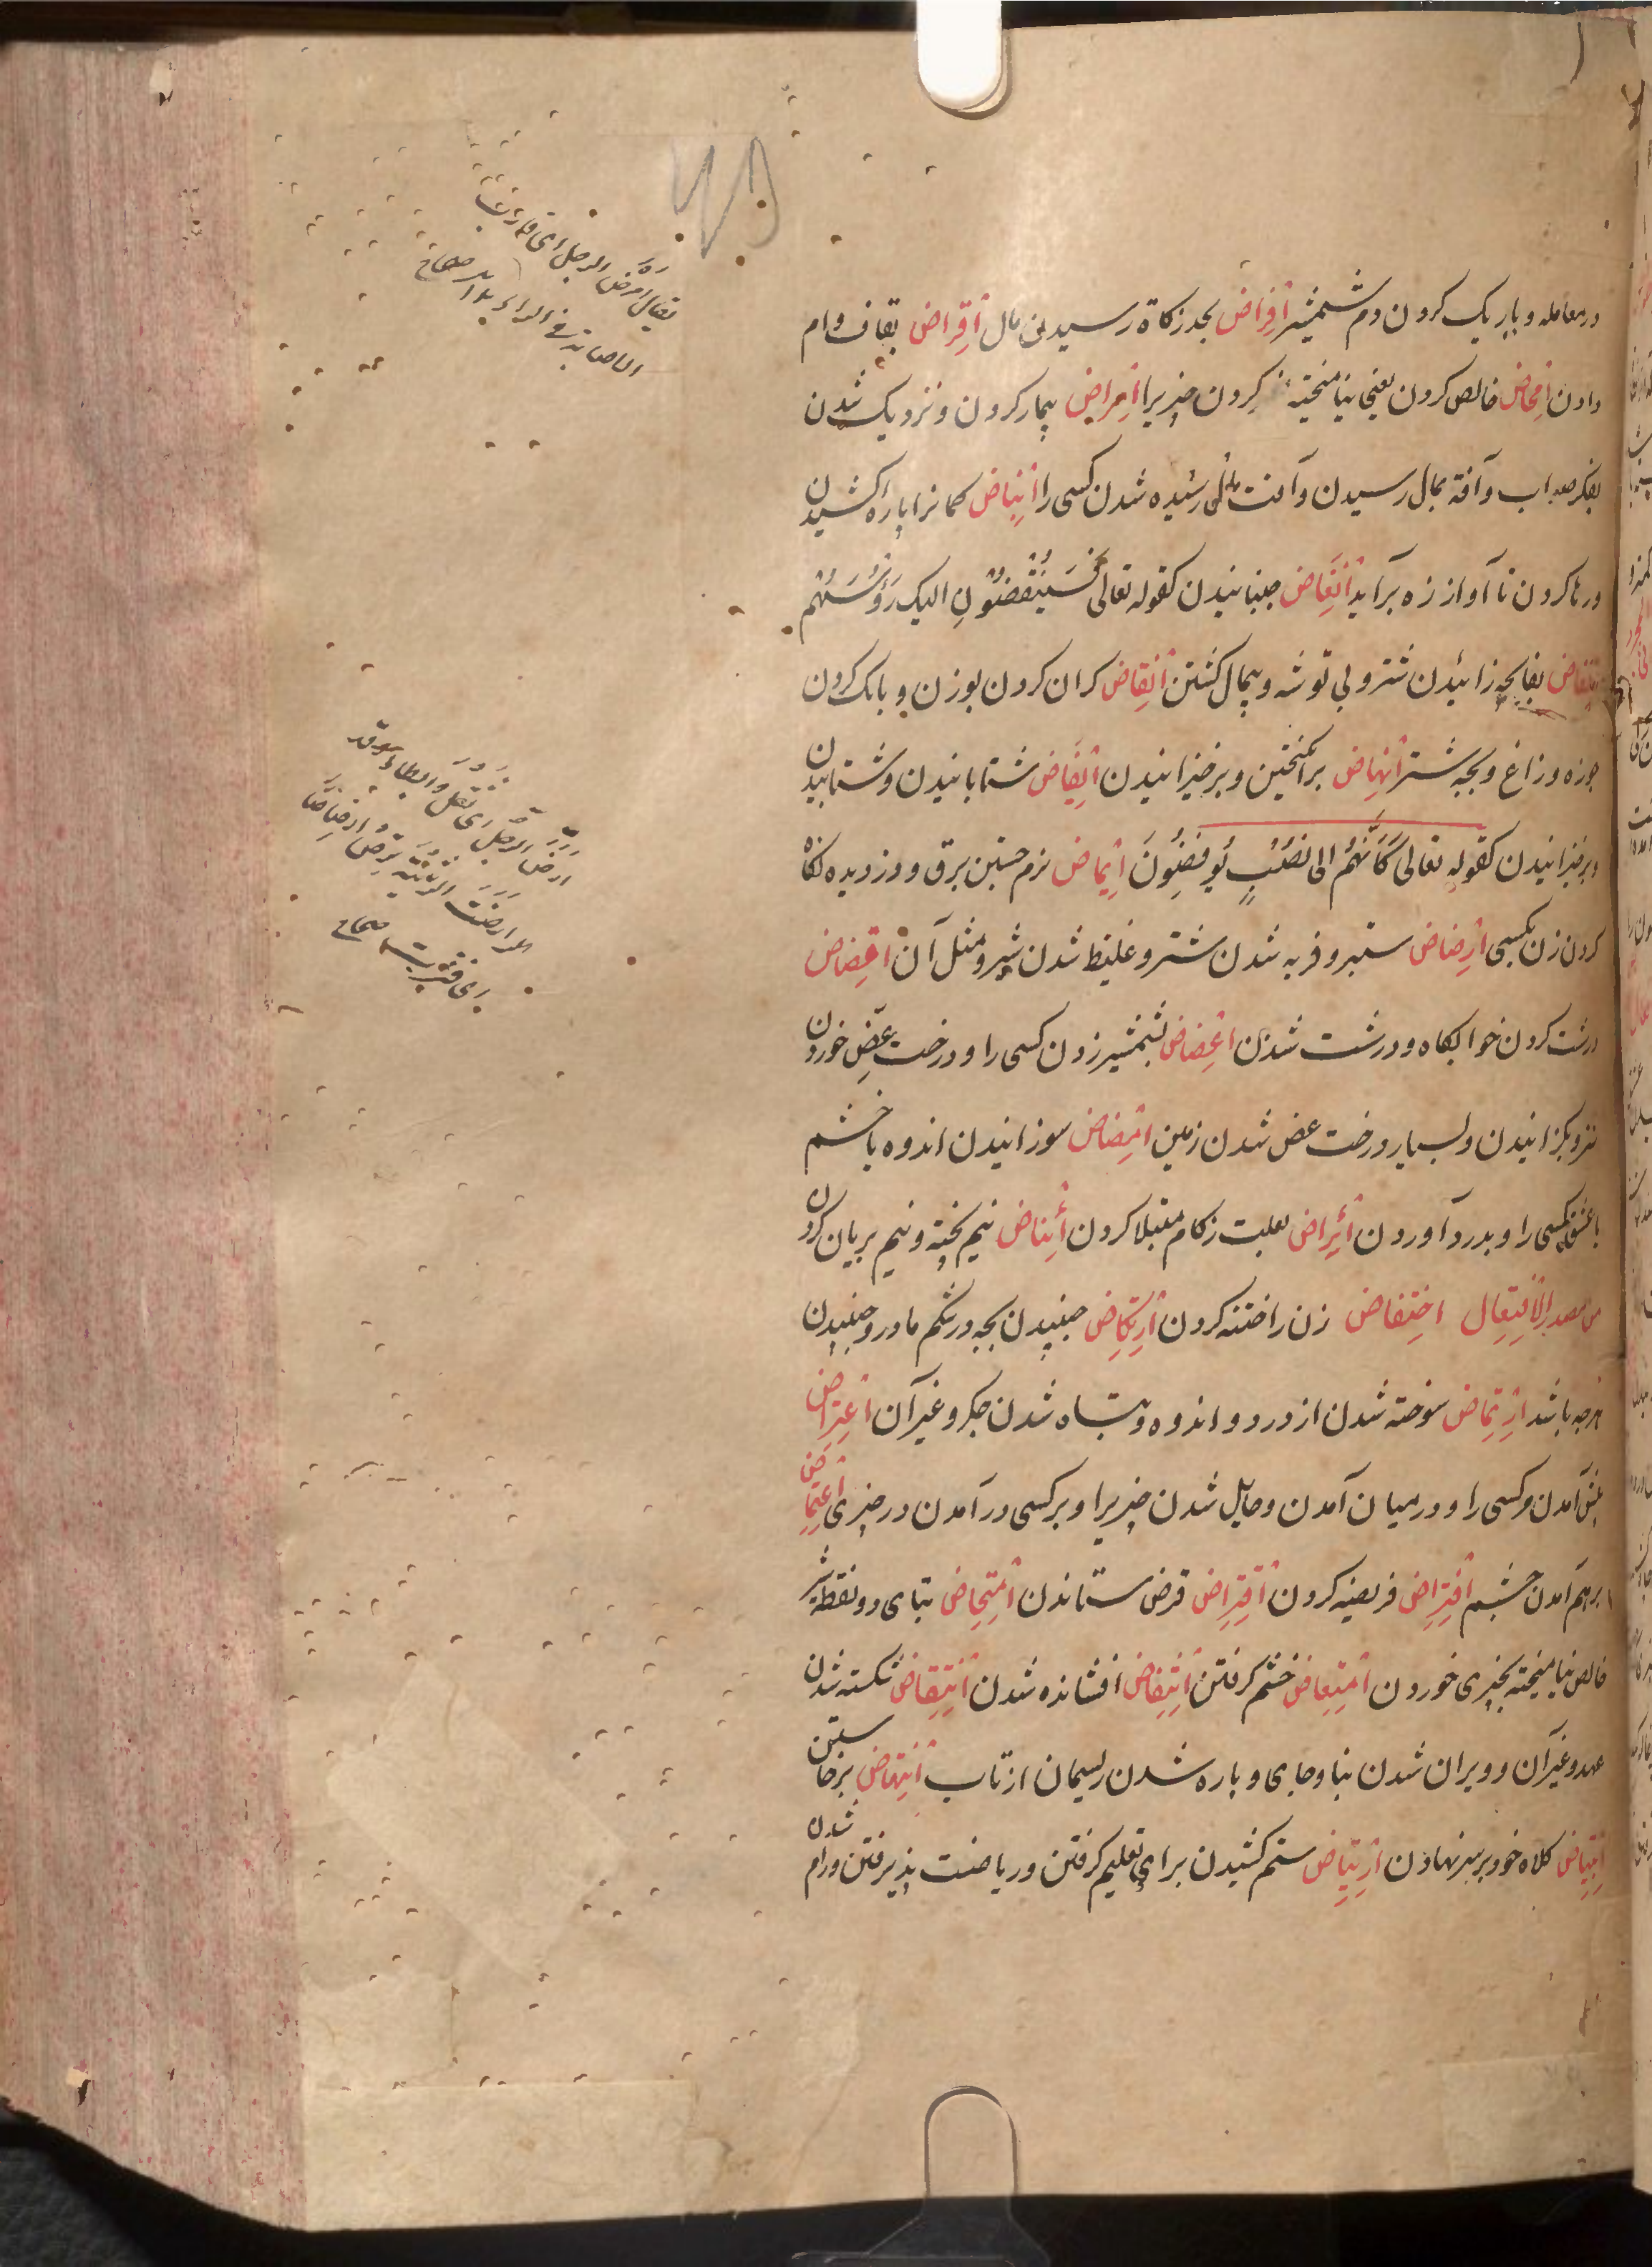 در معامله و باریک کردن دم شمشیر اِفراض بحد زکاة رسیدن مال اِقراض بقاف وام
دادن اِمحاض خالص کردن یعنی نیامیخته کردن چیزیرا اِمراض بیمار کردن و نزدیک شدن
بفکر صواب و آفة بمال رسیدن و آفت رسیده شدن کسی را اِنباض کمانرا باره کشیدن
و رها کردن تا آواز زه برآید اِنغاض جنبانیدن کقوله تعالی فَسَيُنْغِضُونَ اليک رُؤُسَهُم
اِنفاض بفا بچه زائیدن شتر و بی توشه و بیمال کشتن اِنقاض کران کردن بوزن و بانک کردن
جوزه و زاغ و بچه شتر اِنهاض برانکیختن و برخیزانیدن اِیفاض شتابانیدن و شتابیدن
و برخیزانیدن کقوله تعالی کَاَنَّهُم الی نُصُبٍ یُوفِضُونَ اِیماض نرم جستن برق و دزدیده نکاه
کردن زن بکسی اِرضاض ستبر و فربه شدن شتر و غلیظ شدن شیر و مثل آن اِقضاض
درشت کردن خوابکاه و درشت شدن اِعضاض بشمشیر زدن کسی را و درخت عِض خوردن
و بکزانیدن و بسیار درخت عض شدن زمین اِمضاض سوزانیدن اندوه یا خشم
یا عشق کسی را و بدرد آوردن اِئراض بعلت زکام مبتلا کردن اِئناض نیم پخته و نیم بریان کردن
من مصدر الاِفتعال اختفاض زن را ختنه کردن اِرتکاض جنبیدن بچه در شکم مادر و جنبیدن
هرچه باشد اِرتماض سوخته شدن از درد و اندوه و تباه شدن جکر و غیر آن اِعتراض
پیش آمدن مر کسی را و در میان آمدن و حایل شدن چیزیرا و بر کسی در آمدن در چیزی اِغتماض
برهم آمدن چشم اِفتراض فریضه کردن اِقتراض قرض ستاندن اِمتحاض بتای دو نقطه شیر
خالص نیامیخته بچیزی خوردن اِمتعاض خشم کرفتن اِنتفاض افشانده شدن اِنتقاض شکسته شدن
عهد و غیر آن و ویران شدن بنا و جای و باره شدن ریسمان از تاب اِنتهاض برخاستن
اِبتیاض کلاه خود بر سر نهادن اِرتیاض ستم کشیدن برای تعلیم کرفتن و ریاضت پذیرفتن و رام شدن
یقال امرض الرجل ای قارب
الاصابة فی الرای صحاح
ارض الرجل ای ثقل و ابطاء
ارضت الرثیئة ترض ارضاضا
ای خثرت صحاح